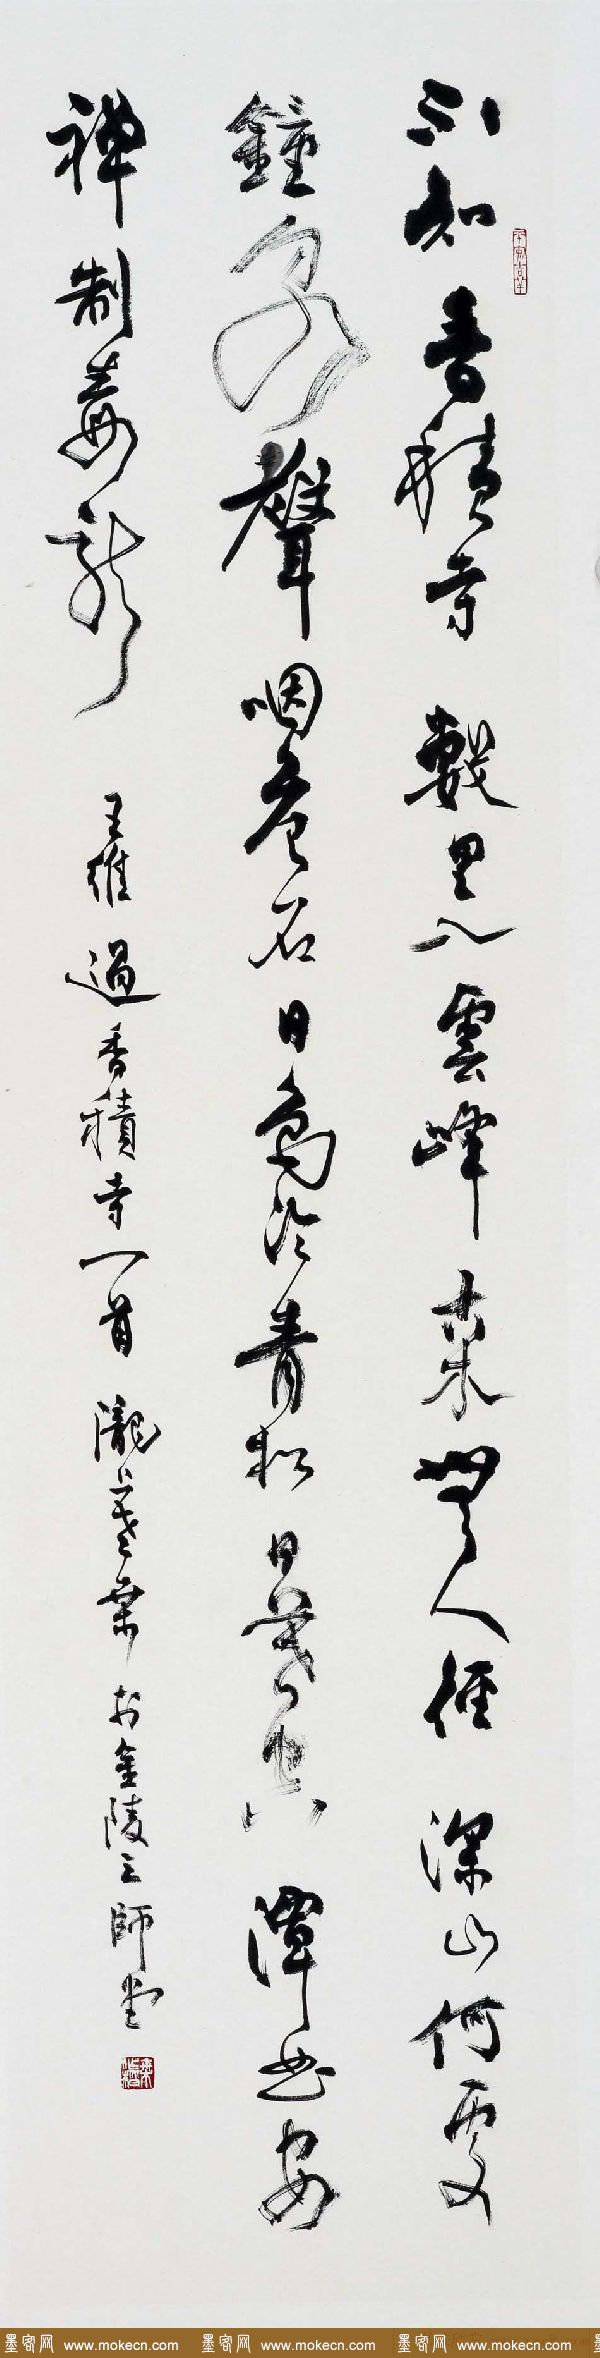 不知香積寺數里入雲峰古木無人徑深山何處
鐘泉聲咽危石日色冷青松日暮空潭曲安
禪制毒龍
王維過香積寺一首 於金陵三師堂
墨客网 www.mokecn.com 墨客网 www.mokecn.com 墨客网 www.mokecn.com